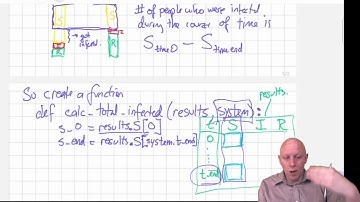 S
S
I
R
R
→ got infected.
# of people who were infected
during the course of time is
S time 0 - S time end
So create a function
def calc_total_infected (results, system):
results.
s_0 = results.S[0]
s_end = results.S[system.t_end]
t S I R
0
t_end